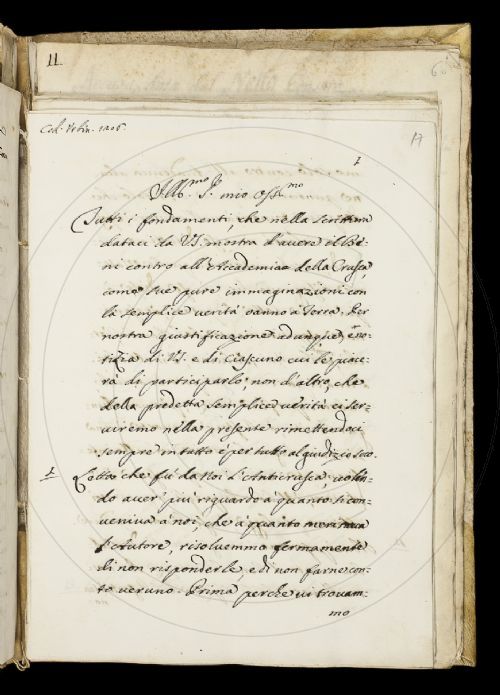 11.
60
Cod. Urbin. 1206.
17
1
Ill.mo S.r mio Oss.mo
Tutti i fondamenti, che nella scrittura
dataci da VS. mostra d'avere il Be-
ni contro all'Accademia della Crusca
come sue pure immaginazioni con
la semplice verità vanno à terra. Per
nostra giustificazione adunque, e no-
tizia di VS. e di Ciascuno cui le piace-
rà di participarlo, non d'altro, che
della predetta semplice verità ci ser-
viremo nella presente rimettendoci
sempre in tutto e per tutto al giudizio suo.
1. Letta che fù da Noi l'Anticrusca, volen-
do aver più riguardo à quanto si con-
veniva à noi, che à quanto meritava
l'Autore, risolvemmo fermamente
di non risponderle, e di non farne con-
to veruno. Prima perche vi trovam-
mo